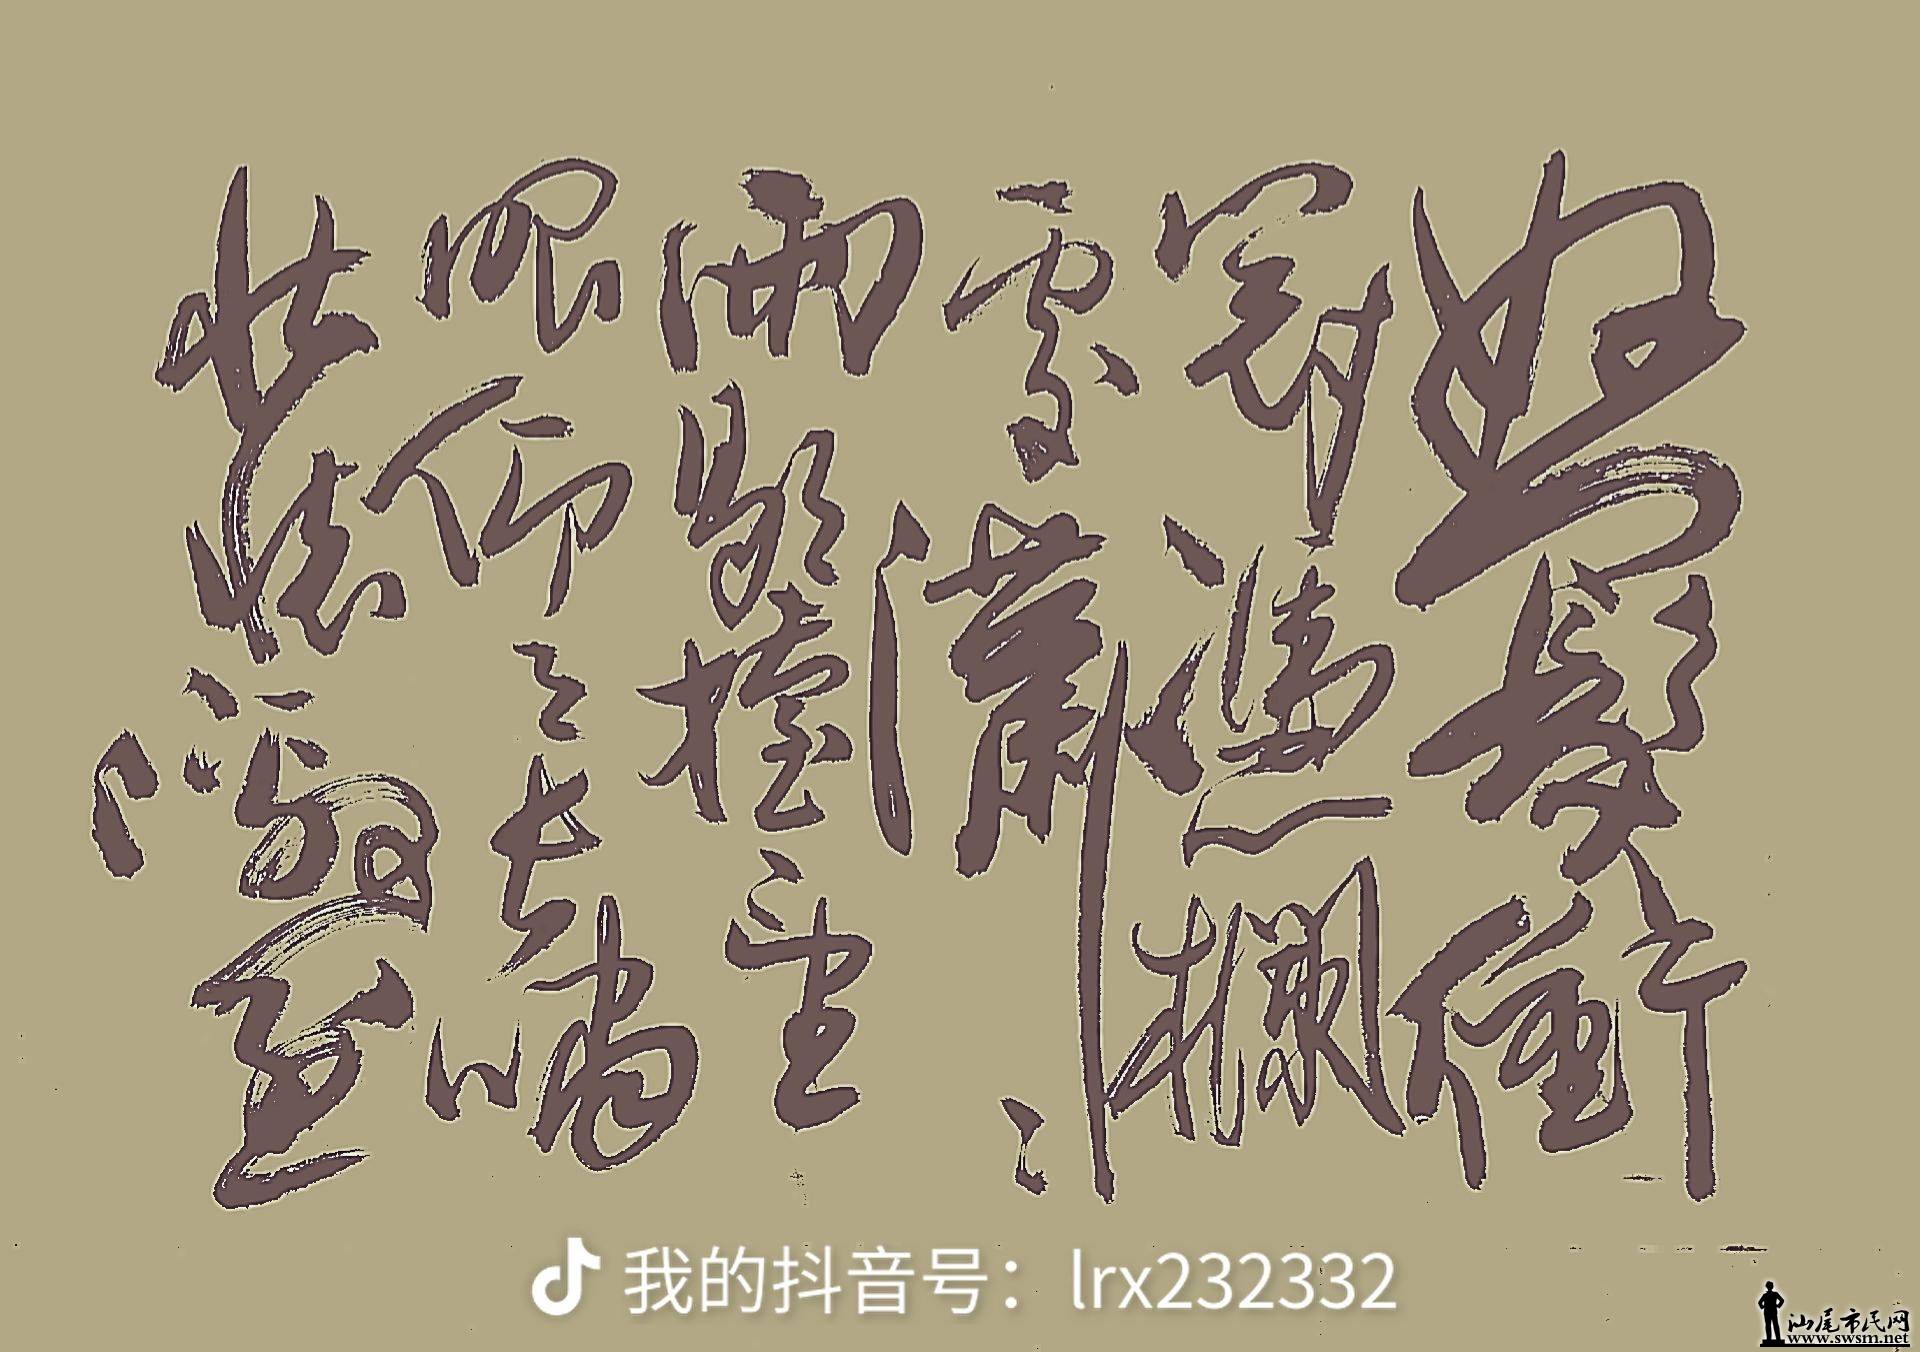 怒髮衝
冠憑欄
處瀟瀟
雨歇擡望
眼仰天長嘯
壯懷激烈
我的抖音号：lrx232332
汕尾市民网
www.swsm.net